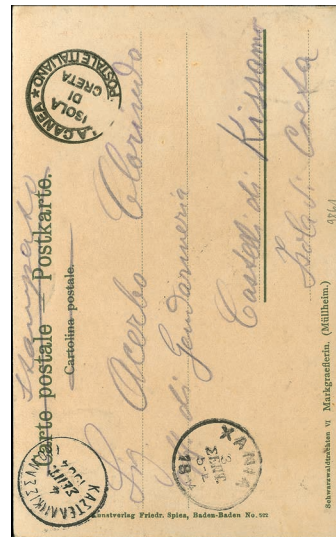 Stampato
Carte postale. Postkarte.
Cartolina postale.
LA CANEA * POSTALE ITALIANO
ISOLA
DI
CRETA
Sig Acerbo Clorindo
di Gendarmeria
Castelli di Kissamo
Isola di Creta
ΚΑΣΤΕΛΛΙ
4
ΣΕΠΤ.
ΧΑΝΙΑ
3
ΣΕΠΤ
Kunstverlag Friedr. Spies, Baden-Baden No.
Schwarzwaldtrachten VI Markgraeflerin. (Müllheim.)